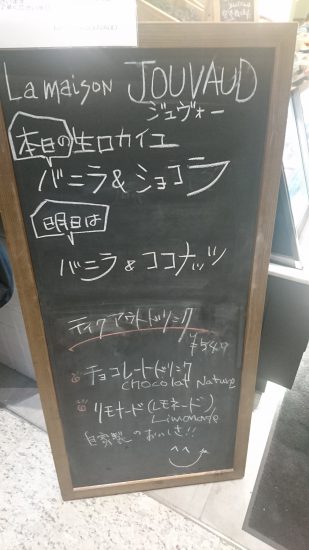 La maison JOUVAUD
ジュヴォー
本日の生ロカイユ
バニラ&ショコラ
明日は
バニラ&ココナッツ
テイクアウトドリンク
¥540
チョコレートドリンク
chocolat Nature
リモナード(レモネード)
Limonade
自家製のおいしさ!!